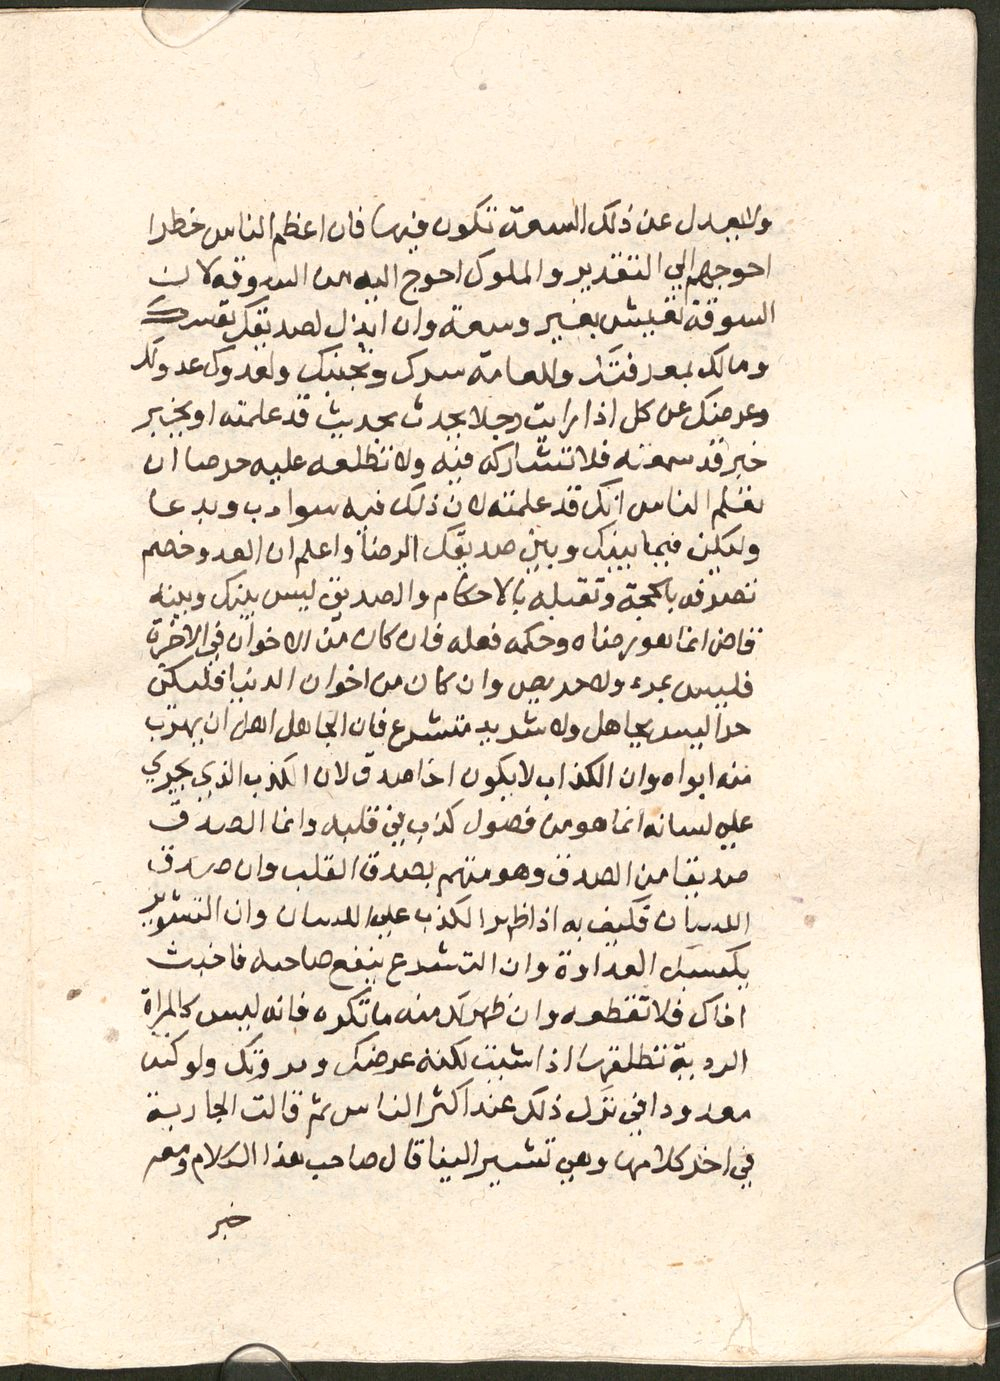 ولا يعدل عن ذلك السعة تكون فيها فان اعظم الناس خطرا
احوجهم الي التقدير والملوك احوج اليه من السوقة لان
السوقة تعيش بغير وسعة وان ابذل لصديقك نفسك
ومالك بمعرفتك وللعامة سرك وتجنبك ولعدوك عدولك
وعرضك عن كل اذا رايت رجلا يحدث بحديث قد علمته او يخبر
خبر قد سمعته فلا تشاركه فيه ولا تطلعه عليه حرصا ان
تعلم الناس انك قد علمته لان ذلك فيه سوادب وبدعا
وليكن فيما بينك وبين صديقك الرضا واعلم ان العدو خصم
تصرفه بالحجة وتقبله بالاحكام والصديق ليس بينك وبينه
قاض انما هو رضاه وحكمه فعله فان كان من الاخوان في الاخرة
فليس بمرء ولا حريص وان كان من اخوان الدنيا فليكن
حرا ليس بجاهل ولا شديد متشرع فان الجاهل اهل ان يهرب
منه ابواه وان الكذاب لا يكون اخا صدق لان الكذب الذي يجري
علي لسانه انما هو من فضول كذب في قلبه وانما الصدق
صديقا من الصدق وهو متهم بصدق القلب وان صدق
اللسان فكيف به اذا ظهر الكذب علي اللسان وان الشرير
يكسبك العداوة وان التشرع ينفع صاحبه فاخبث
اخاك فلا تقطعه وان ظهر لك منه ما تكره فانه ليس كالمراة
الردية تطلقها اذا شيت لكنه عرضك ومروتك ولو كنت
معدودا في نزل ذلك عند اكثر الناس ثم قالت الجارية
في اخر كلامها وهي تشير الينا قال صاحب هذا الكلام ومعه
خبر